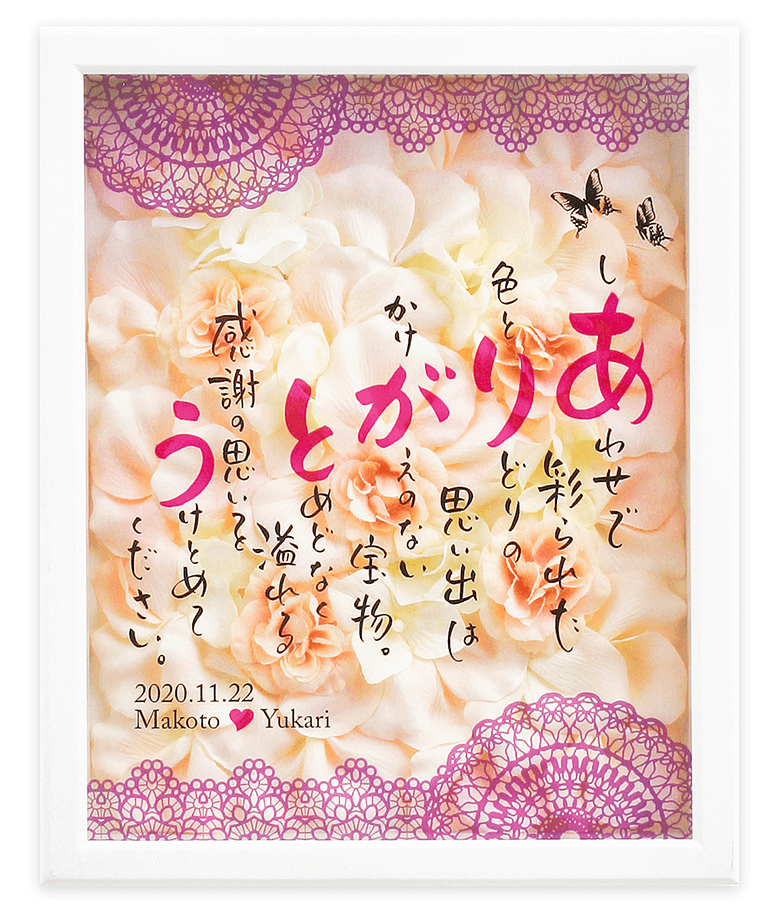 しあわせで
彩られた
色とりどりの
思い出は
かけがえのない
宝物。
とめどなく
溢れる
感謝の思いを
うけとめて
ください。
2020.11.22
Makoto ♥ Yukari